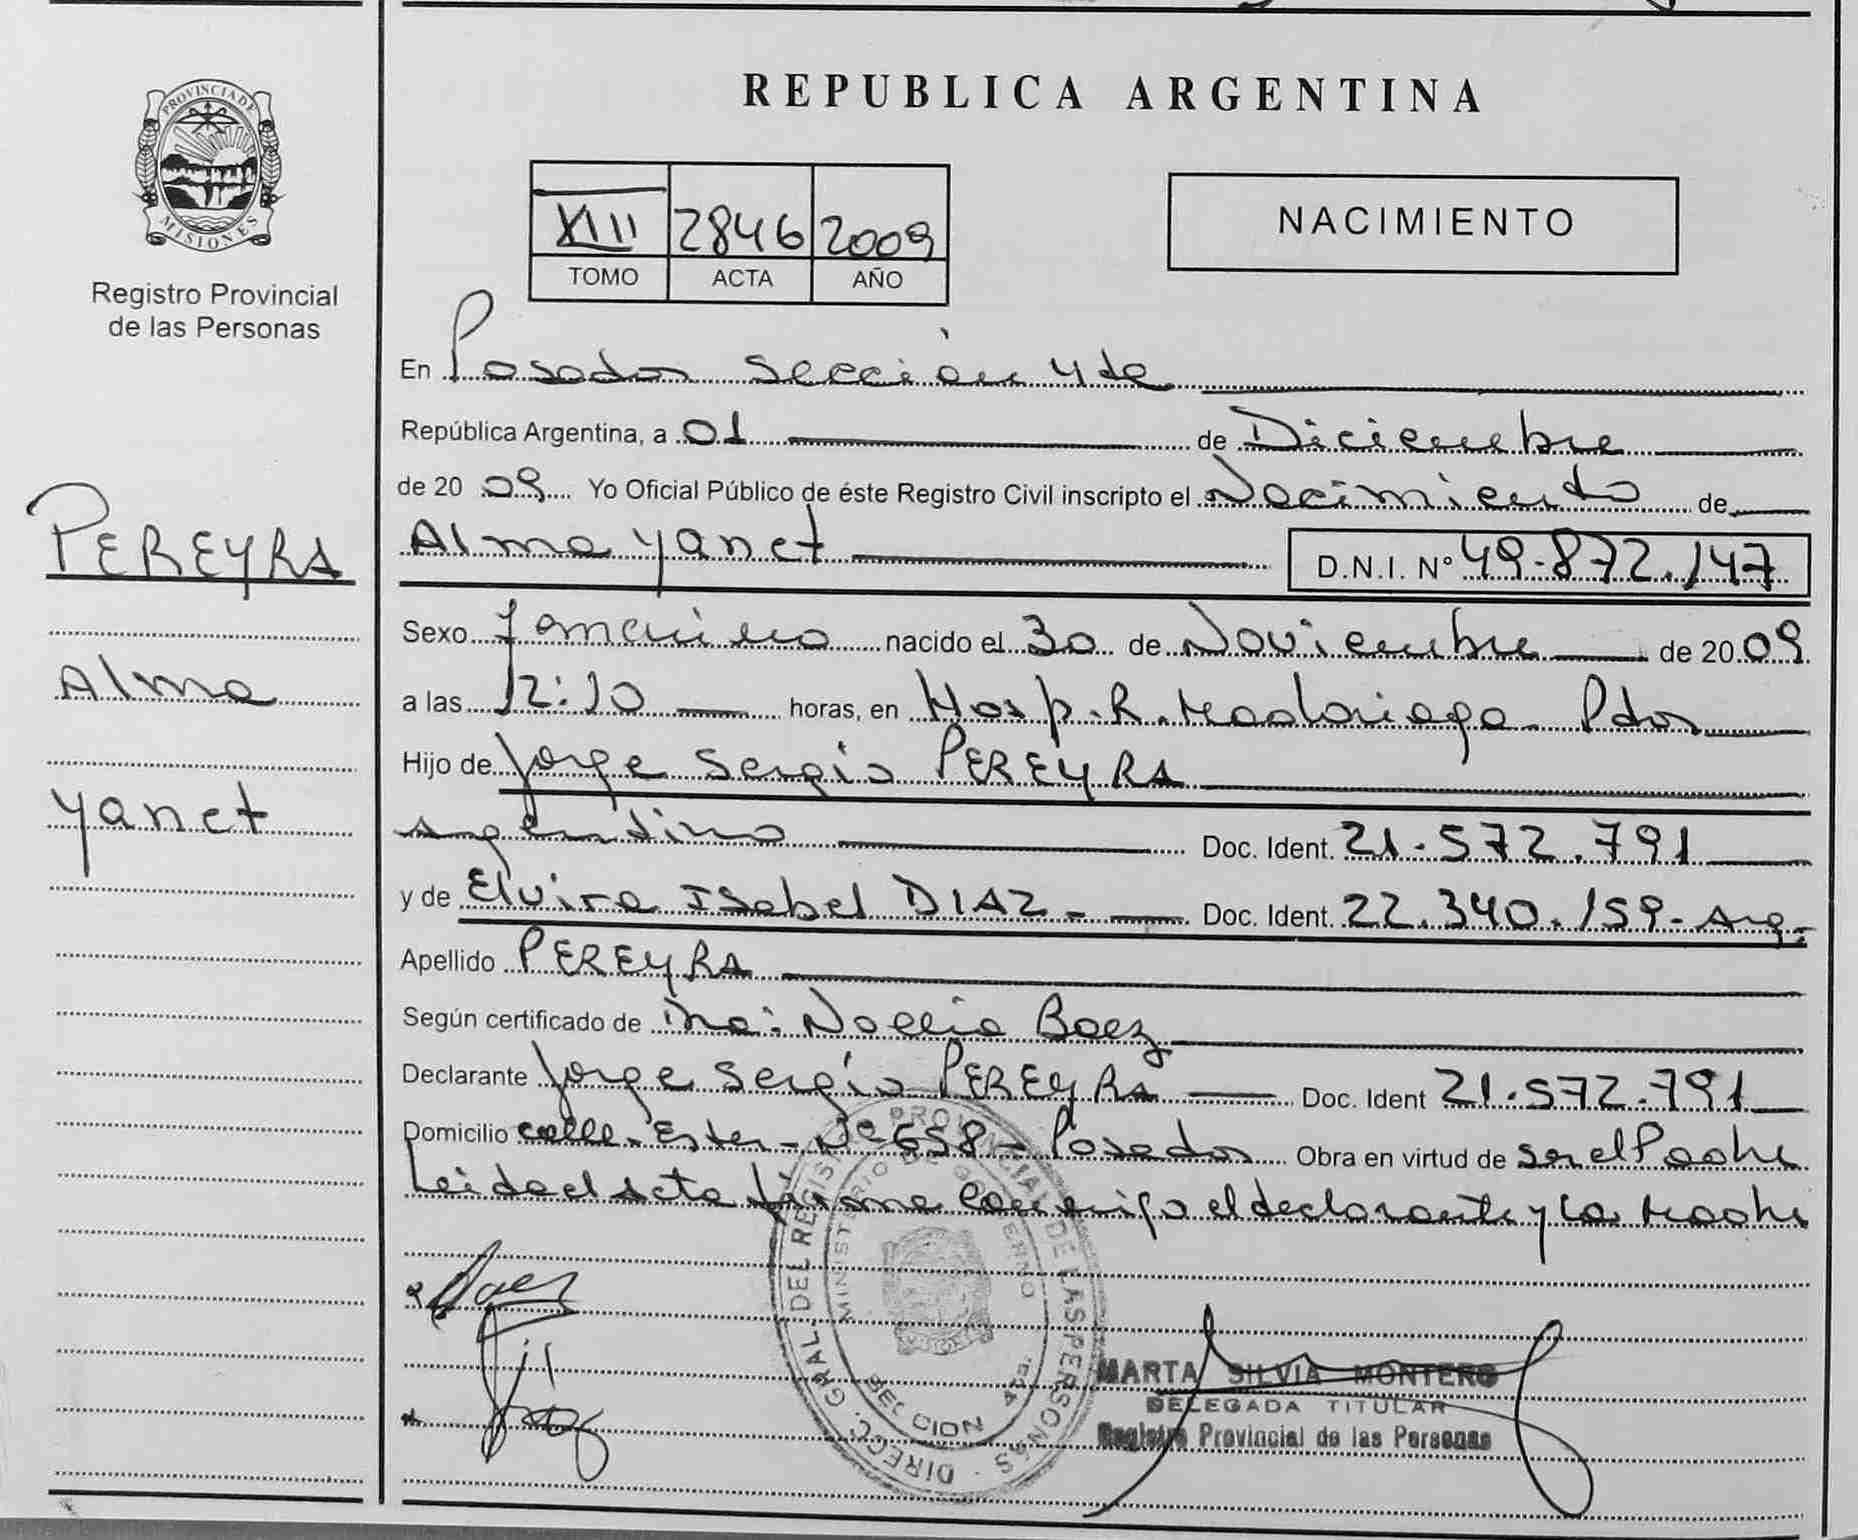 PROVINCIA DE
MISIONES
Registro Provincial
de las Personas
PEREYRA
Alma
Yanet
REPUBLICA ARGENTINA
XIII 2846 2009
TOMO ACTA AÑO
NACIMIENTO
En Posadas sección 4ta
República Argentina, a 01 de Diciembre
de 20 09 Yo Oficial Público de éste Registro Civil inscripto el Nacimiento de
Alma Yanet D.N.I. N° 49.872.147
Sexo Femenino nacido el 30 de Noviembre de 20 09
a las 12:10 horas, en Hosp. R. Madariaga Pdas
Hijo de Jorge Sergio PEREYRA
argentino Doc. Ident. 21.572.791
y de Elvira Isabel DIAZ - Doc. Ident. 22.340.159 - Arg.
Apellido PEREYRA
Según certificado de Dra: Noelia Baez
Declarante Jorge Sergio PEREYRA Doc. Ident 21.572.791
Domicilio calle - Ester - N° 658 - Posadas Obra en virtud de ser el Padre
Leida el acta firma conmigo el declarante y la Madre
DIRECC. GRAL. DEL REGISTRO PROVINCIAL DE LAS PERSONAS
MINISTERIO DE GOBIERNO
4ta.
MARTA SILVIA MONTERO
DELEGADA TITULAR
Registro Provincial de las Personas